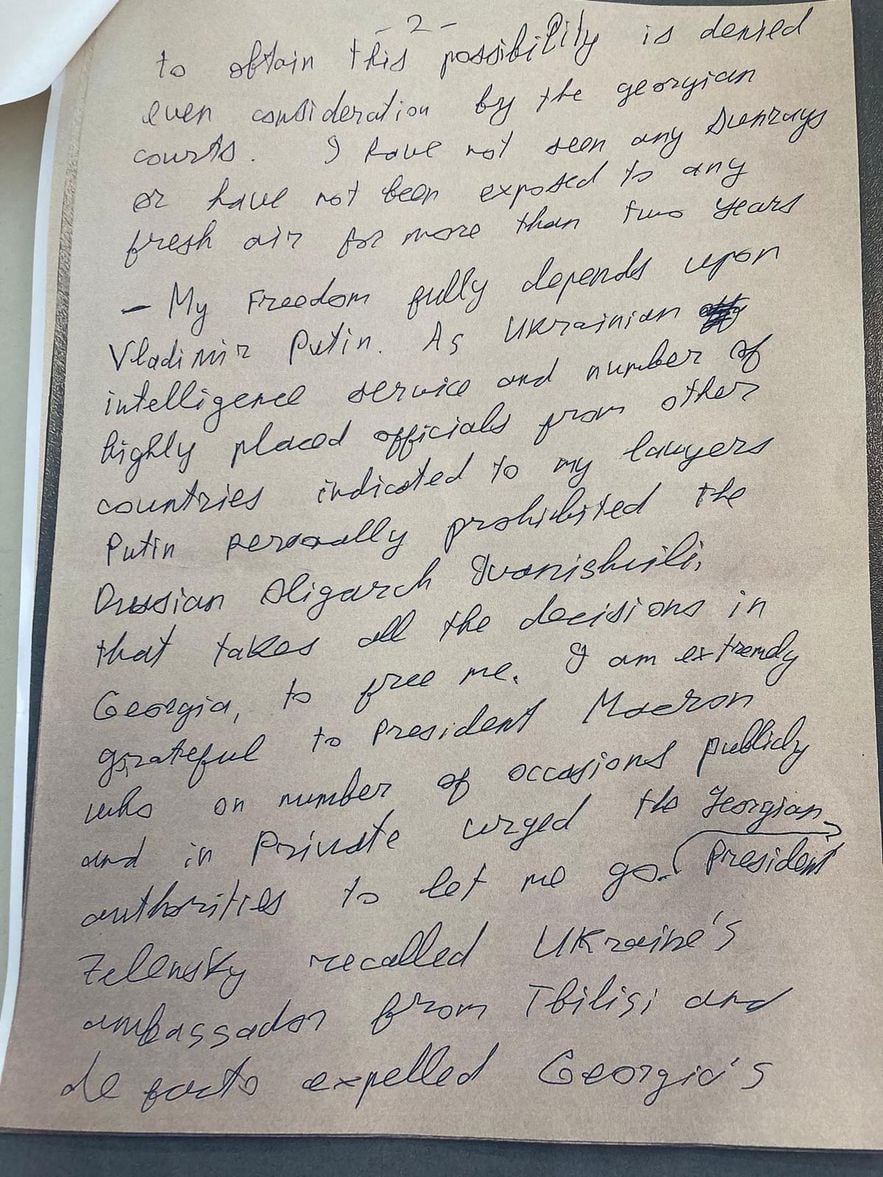 - 2 -
to obtain this possibility is denied
even consideration by the georgian
courts. I have not seen any sunrays
or have not been exposed to any
fresh air for more than two years
- My Freedom fully depends upon
Vladimir Putin. As Ukrainian
intelligence service and number of
highly placed officials from other
countries indicated to my lawyers
Putin personally prohibited the
Russian Oligarch Ivanishvili,
that takes all the decisions in
Georgia, to free me. I am extremely
grateful to President Macron
who on number of occasions publicly
and in Private urged the Georgian
authorities to let me go. President
Zelensky recalled Ukraine's
ambassador from Tbilisi and
de facto expelled Georgia's